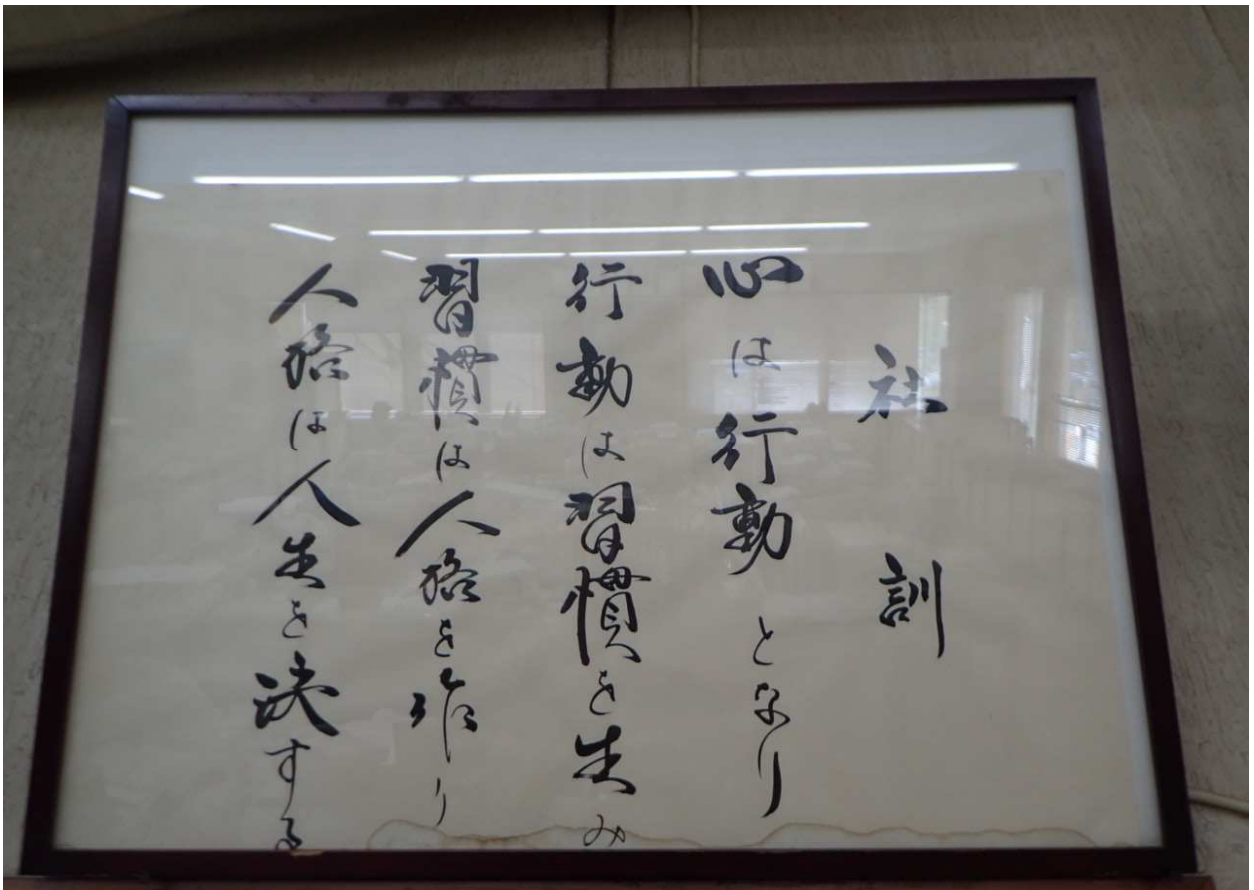 社訓
心は行動となり
行動は習慣を生み
習慣は人格を作り
人格は人生を決する